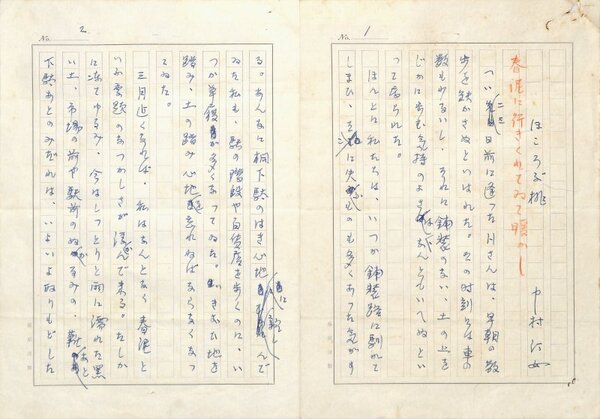 No. 1
ほころぶ桃 中村汀女
春泥に行きくれてゐて暖かし
つい二三日前に逢った川さんは、早朝の散
歩を欠かさぬといはれた。その時刻には車の
数も少ないし、それに舗装のない、土の上を
じかに歩む気持のよさはなんともいへぬとい
って居られた。
ほんとに私たちは、いつか舗装路に馴れて
しまひ、失ふものも多くあった気がす
No. 2
る。あんなに桐下駄のはき心地に親しんで
ゐた私も、駅の階段や百貨店を歩くのに、い
つか草履が多くなってゐた。地を
踏み、土の踏み心地を忘れねばならなくなっ
てゐた。
三月近くなれば、私はなんとなく春泥と
いふ季題のなつかしさが浮んで来る。たしか
に凍てゆるみ、今はしっとりと雨に濡れた黒
い土、市場の前や駅前のぬかるみの、靴あと
下駄あとのみだれは、いよいよ取りもどした